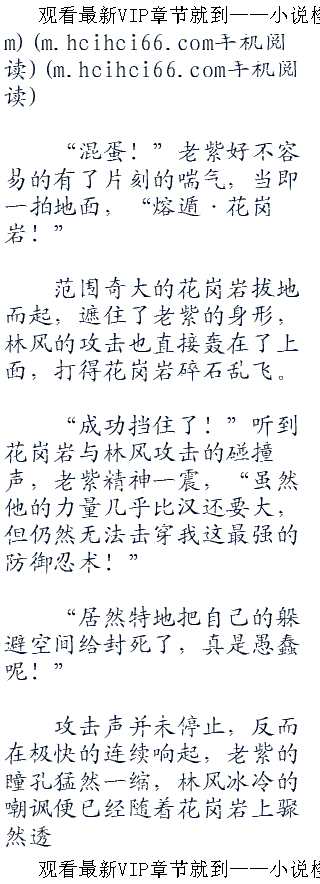 观看最新VIP章节就到——小说检
m)(m.hcihci66.com手机阅
读)(m.hcihci66.com手机阅
读)
“混蛋！”老紫好不容
易的有了片刻的喘气，当即
一拍地面，“熔遁·花岗
岩！”
范围奇大的花岗岩拔地
而起，遮住了老紫的身形，
林风的攻击也直接轰在了上
面，打得花岗岩碎石乱飞。
“成功挡住了！”听到
花岗岩与林风攻击的碰撞
声，老紫精神一震，“虽然
他的力量几乎比汉还要大，
但仍然无法击穿我这最强的
防御忍术！”
“居然特地把自己的躲
避空间给封死了，真是愚蠢
呢！”
攻击声并未停止，反而
在极快的连续响起，老紫的
瞳孔猛然一缩，林风冰冷的
嘲讽便已经随着花岗岩上骤
然透
观看最新VIP章节就到——小说检